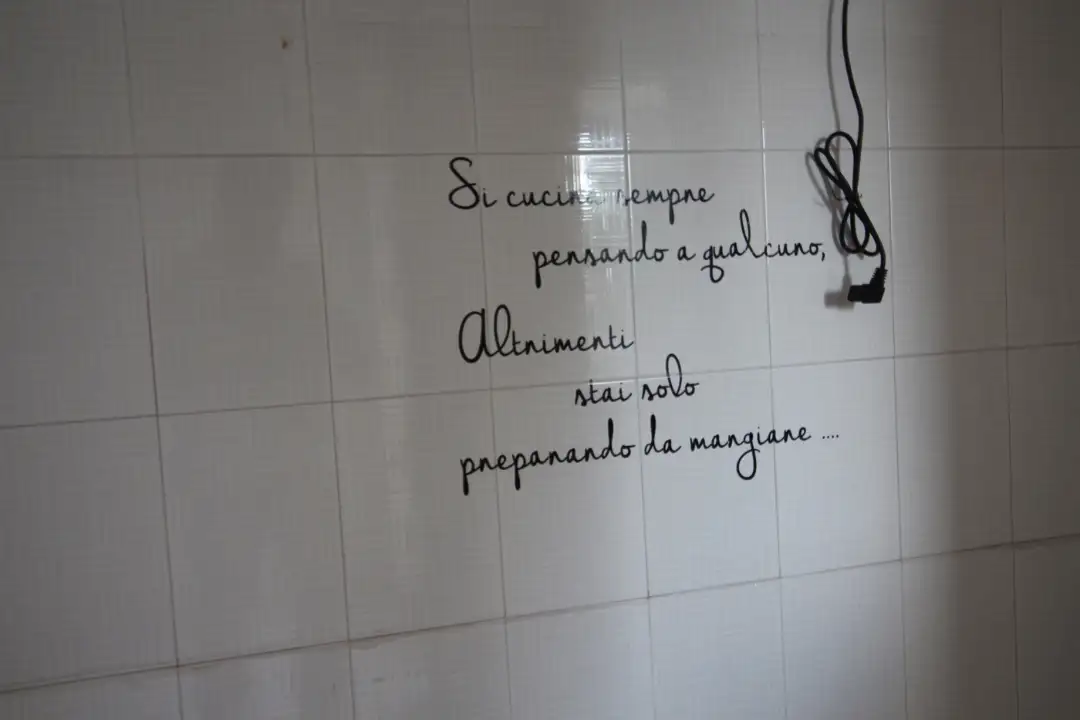 Si cucina sempre
pensando a qualcuno,
Altrimenti
stai solo
preparando da mangiare ....